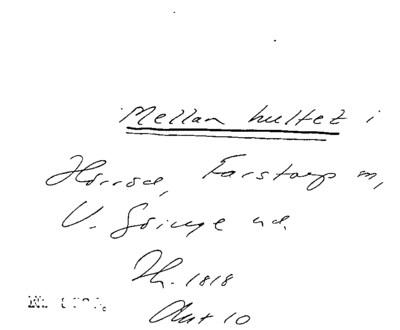 Mellan hultet i
Hörröd, Farstorp m,
V. Göinge hd.
Th. 1818
Akt 10